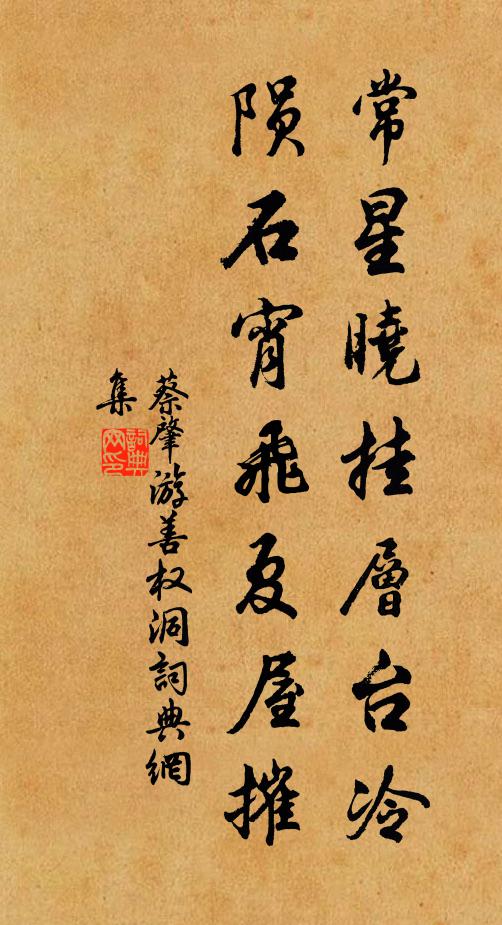 常星曉挂層台冷
陨石宵飛夏屋摧
蔡肇游善权洞詞典網
集
詞典网印